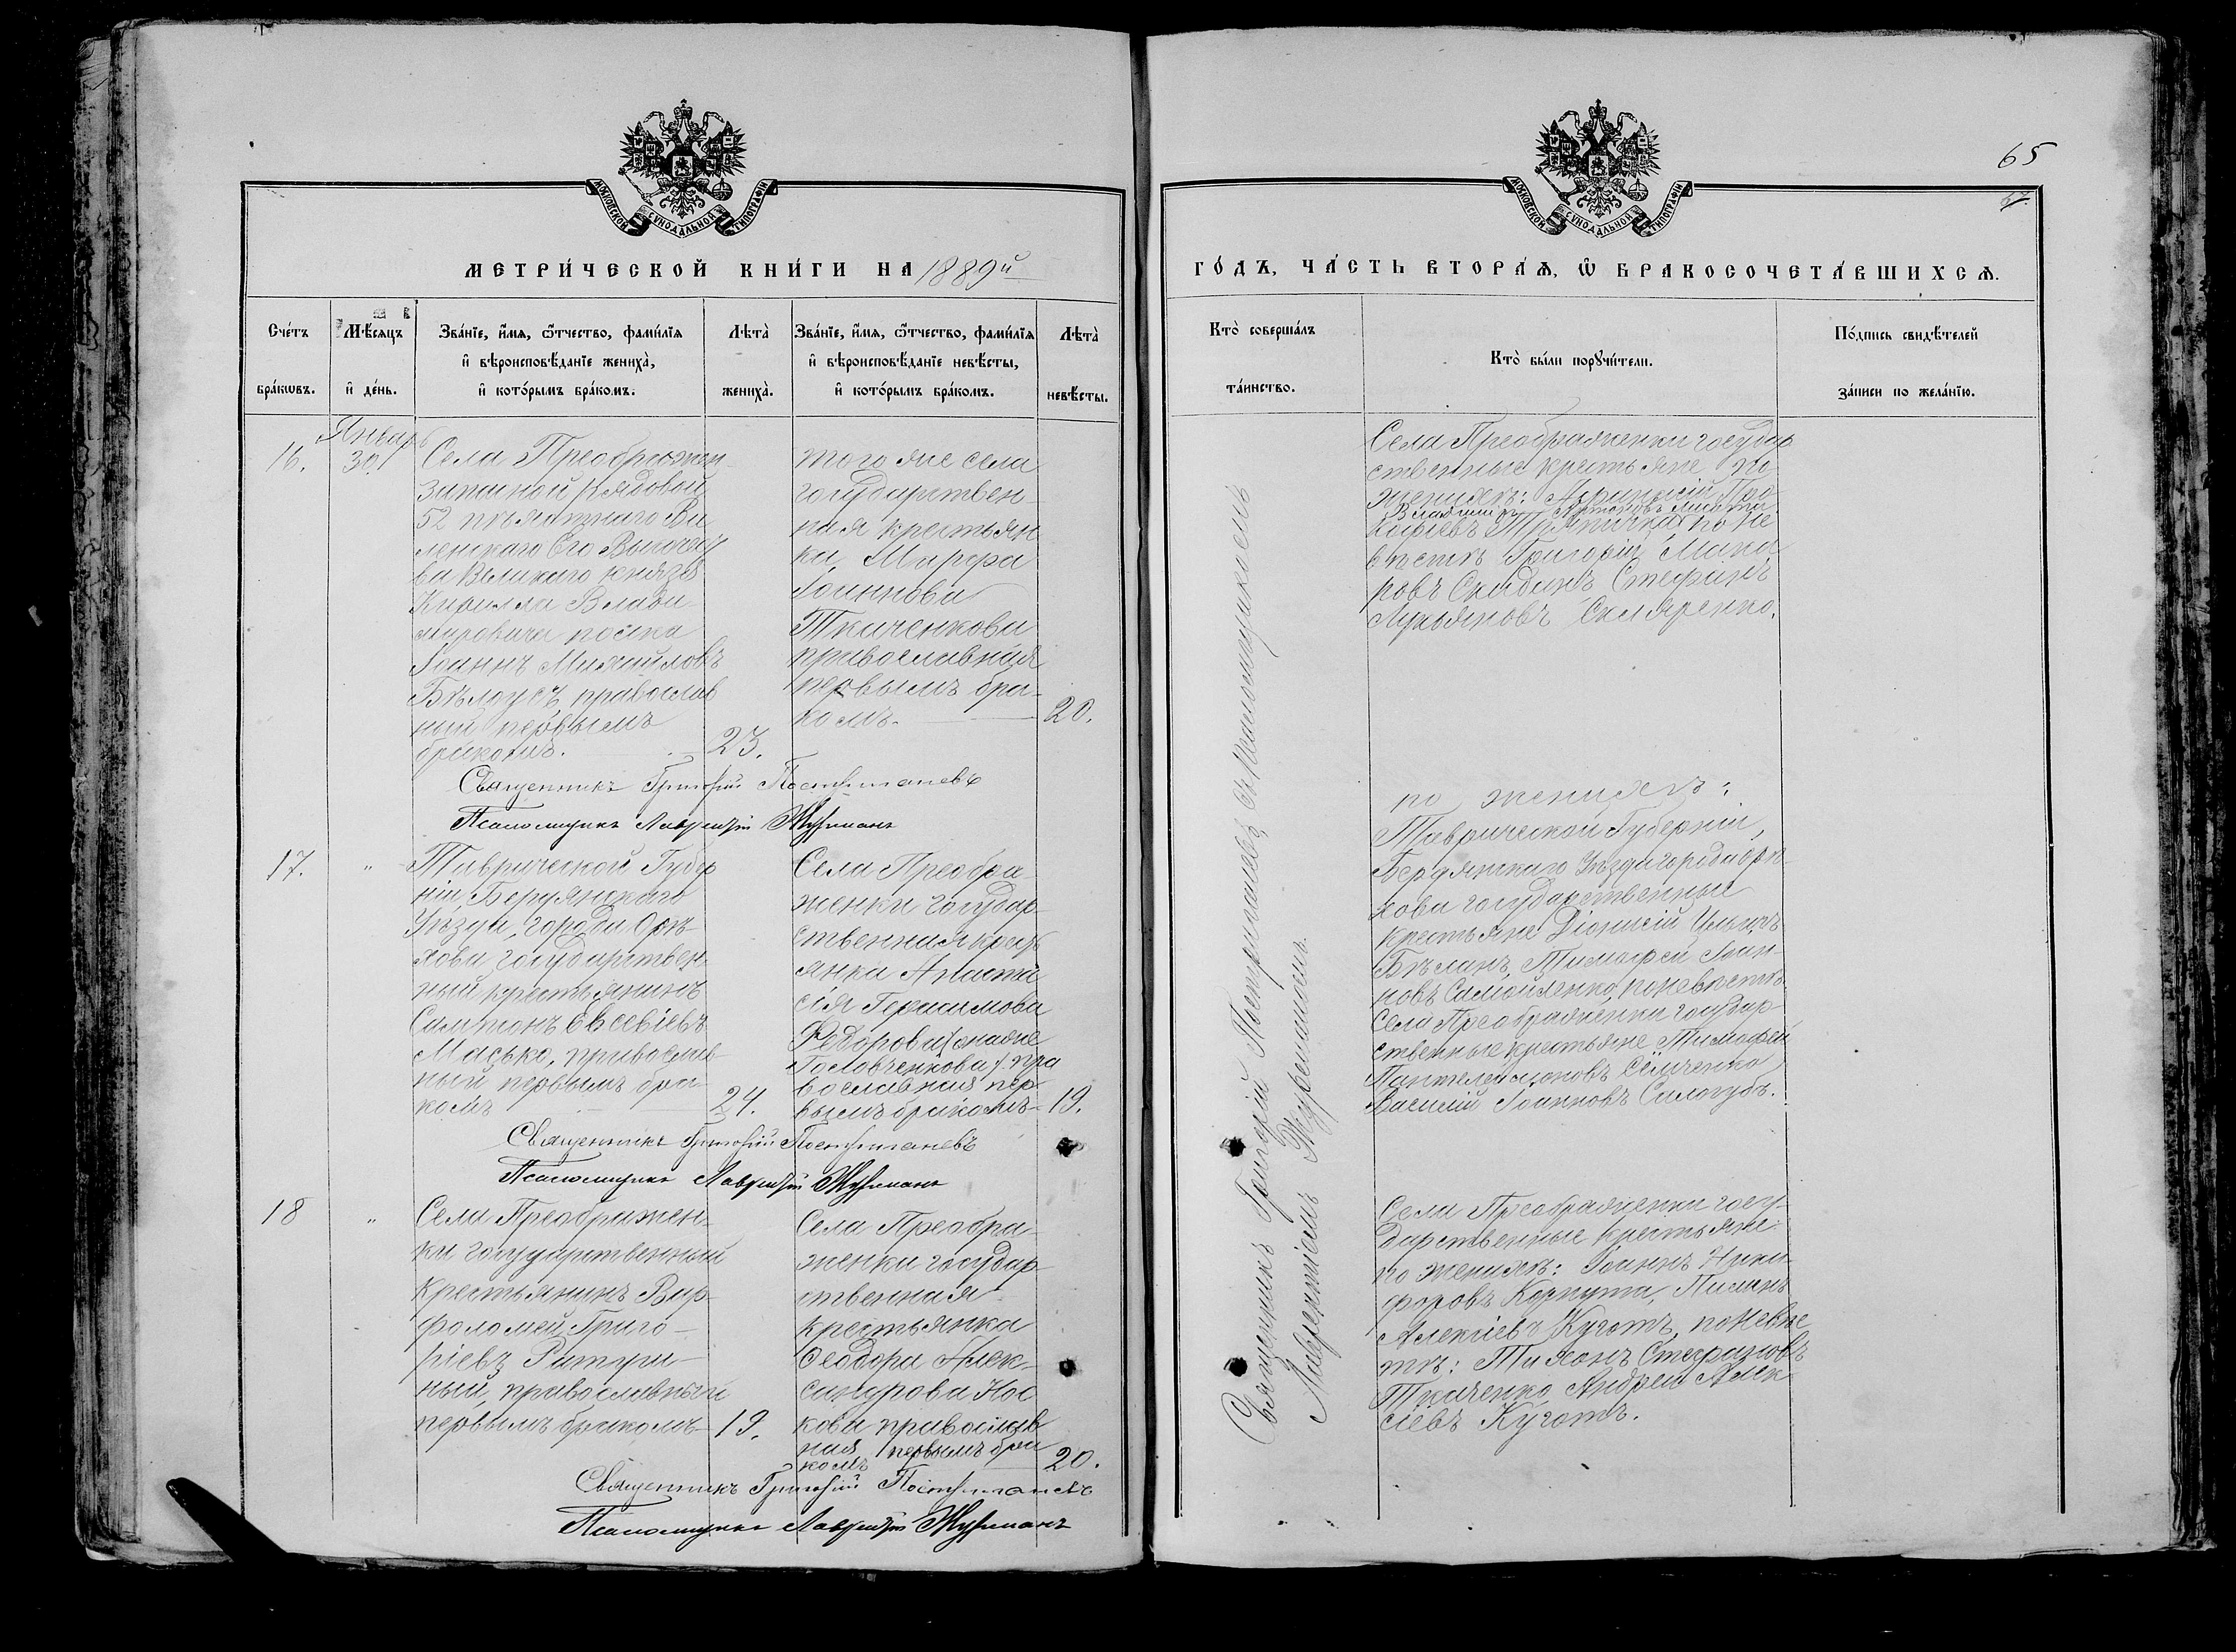 МОСКОВСКОЙ СѴНОДАЛЬНОЙ ТИПОГРАФІИ
МЕТРИ́ЧЕСКОЙ КНИ́ГИ НА 1889й
Сче́тъ бра́кѡвъ.
Мѣ́сяцъ и҆ де́нь.
Зва́нїе, и҆́мѧ, ѻ҆́тчество, фами́лїѧ
и҆ вѣроисповѣ́данїе жениха̀,
и҆ кото́рымъ бра́комъ.
Лѣта̀ жениха̀.
Зва́нїе, и҆́мѧ, ѻ҆́тчество, фами́лїѧ
и҆ вѣроисповѣ́данїе невѣ́сты,
и҆ кото́рымъ бра́комъ.
Лѣта̀ невѣ́сты.
16.
Январь
30.
Села Преображен-
запасной рядовой
52 пѣхотнаго Ви
ленскаго Его Высочест
ва Великаго князя
Кирилла Влади
мировича полка
Іоаннъ Михайловъ
Бѣлоусъ, православ
ный первымъ
бракомъ.
23.
того же села
государствен-
ная крестьян
ка, Марфа
Іоаннова
Ткаченкова
православная
первымъ бра-
комъ.
20.
Священникъ Григорій Постригачевъ
Псаломщикъ Лаврентій Журманъ
17.
"
Таврической Губер
ніи, Бердянскаго
Уѣзда, города Орѣ-
хова, государствен
ный крестьянинъ
Сампсонъ Евсевіевъ
Масько, православ-
ный первымъ бра-
комъ
24.
Села Преобра-
женки государ-
ственная крест
янка Анаста
сія Герасимова
Федорова (она же
Головченкова) пра
вославная пер-
вымъ бракомъ
19.
Священникъ Григорій Постригачевъ
Псаломщикъ Лаврентій Журманъ
18
"
Села Преображен-
ки государственный
крестьянинъ Вар-
фоломей Григо-
ріевъ Ратуш-
ный, православный
первымъ бракомъ
19.
Села Преобра-
женки государ-
ственная
крестьянка
Ѳеодора Алек-
сандрова Нос
кова православ
ная первымъ бра
комъ
20.
Священникъ Григорій Постригачевъ
Псаломщикъ Лаврентій Журманъ
65
МОСКОВСКОЙ СѴНОДАЛЬНОЙ ТИПОГРАФІИ
ГО́ДЪ, ЧА́СТЬ ВТОРА́Ѧ, Ѡ҆ БРАКОСОЧЕТА́ВШИХСѦ.
Кто̀ соверша́лъ та́инство.
Кто̀ бы́ли порꙋчи́тели.
По́дпись свидѣ́телей за́писи по жела́нїю.
Священникъ Григорій Постригачевъ съ псаломщикомъ
Лаврентіемъ Журманомъ.
Села Преображенки государ
ственные крестьяне по
женихѣ: Аѳанасій Про
кофіевъ по не
вѣстѣ Григорій Мака
ровъ Скибанъ Стефанъ
Лукьяновъ Скляренко.
по женихѣ:
Таврической Губерніи,
Бердянскаго Уѣзда города Орѣ
хова государственные
крестьяне Діонисій Ильинъ
Бѣланъ, Тимофей Іоан-
новъ Самойленко, по невѣстѣ
Села Преображенки государ-
ственные крестьяне Тимофей
Пантелеимоновъ Семченко
Василій Іоанновъ Салогубъ.
Села Преображенки госу-
дарственные крестьяне
по женихѣ: Іоаннъ Ники-
форовъ Корпута, Пименъ
Алексіевъ Куготъ, по невѣс
тѣ: Тихонъ Стефановъ
Ткаченко Андрей Алек-
сіевъ Куготъ.